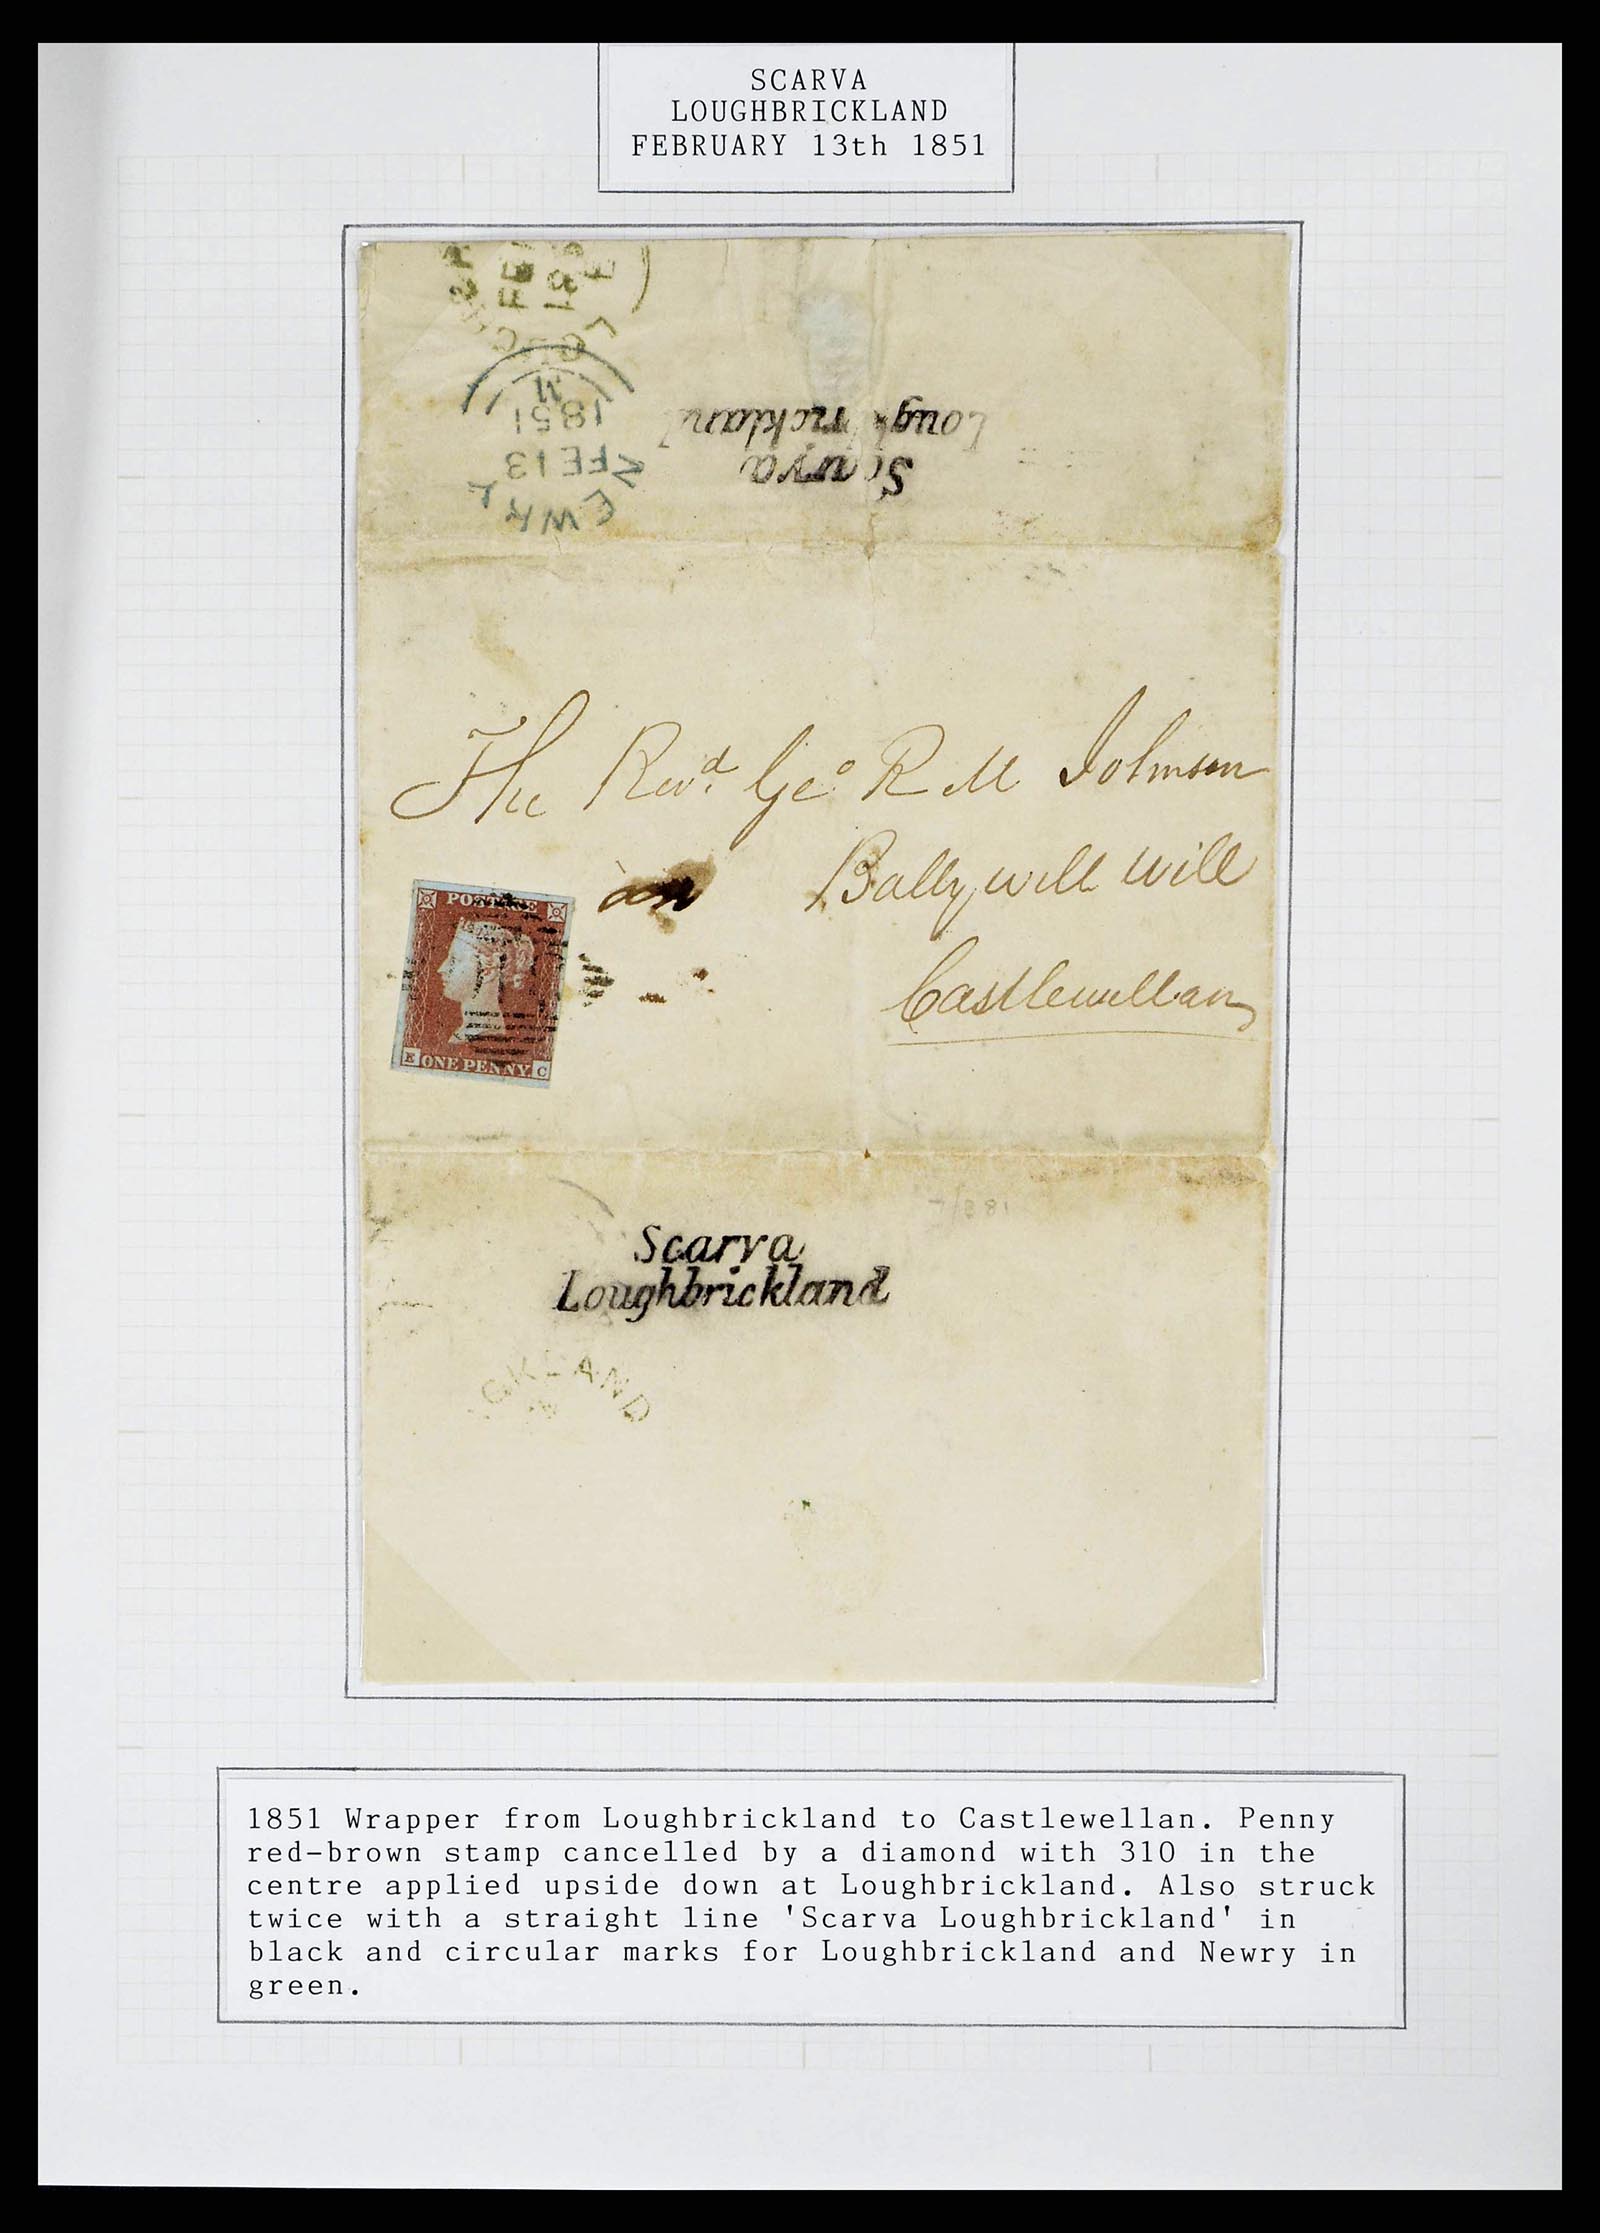 SCARVA
LOUGHBRICKLAND
FEBRUARY 13th 1851
LOUG
1851
M
NEWRY
FE 13
1851
Loug rickland
Scarva
The Revd. Geo. R M Johnson
Ballywillwill
Castlewellan
POSTAGE
E ONE PENNY C
Scarva
Loughbrickland
CKLAND
1851 Wrapper from Loughbrickland to Castlewellan. Penny
red-brown stamp cancelled by a diamond with 310 in the
centre applied upside down at Loughbrickland. Also struck
twice with a straight line 'Scarva Loughbrickland' in
black and circular marks for Loughbrickland and Newry in
green.